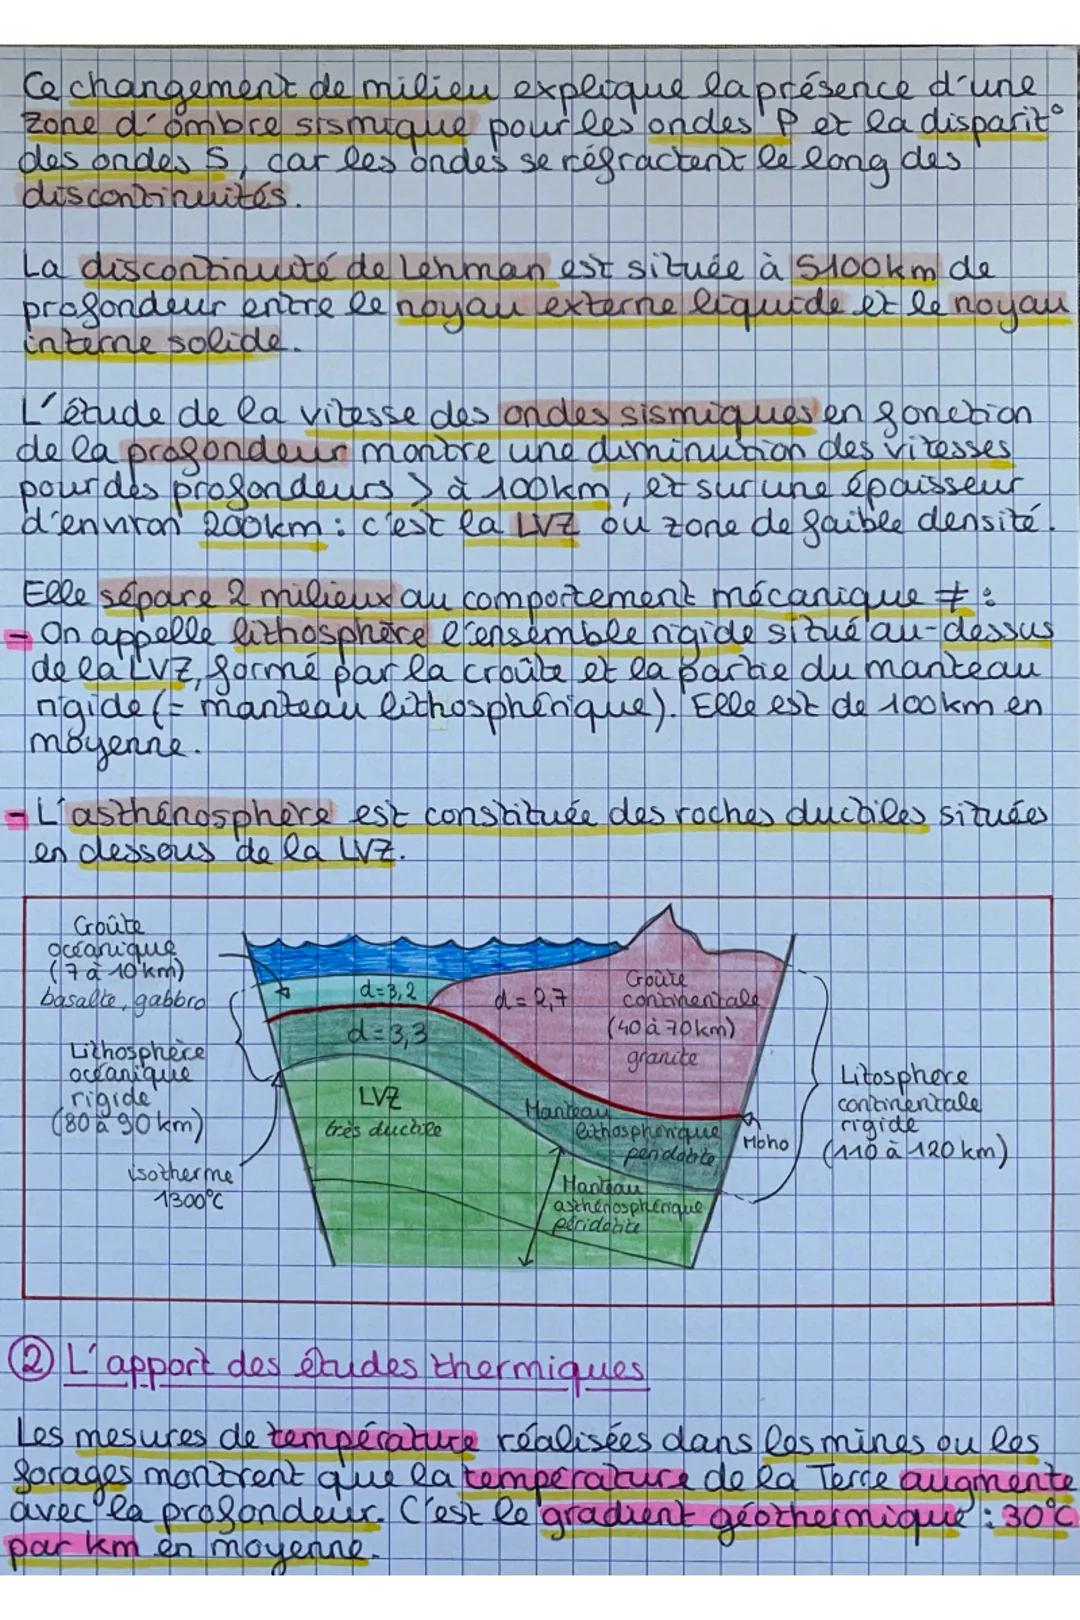 Ce changement de milieu explique la présence d'une
zone d'ombre sismique pour les ondes P et la disparit°
des ondes S, car les ondes se réfractent le long des
discontinuités.
La discontinuité de Lehman est située à 5100km de
profondeur entre le noyau externe liquide et le noyau
interne solide.
L'étude de la vitesse des ondes sismiques en fonction
de la profondeur montre une diminution des vitesses
pour des profondeurs > à 100km, et sur une épaisseur
d'environ 200km : c'est la LVZ ou zone de faible densité.
Elle sépare 2 milieux au comportement mécanique ≠ :
- On appelle lithosphère l'ensemble rigide situé au-dessus
de la LVZ, formé par la croûte et la partie du manteau
rigide (= manteau lithosphérique). Elle est de 100km en
moyenne.
- L'asthénosphère est constituée des roches ductiles situées
en dessous de la LVZ.
Croûte
océanique
(7 à 10km)
basalte, gabbro
Lithosphère
océanique
rigide
(80 à 90km)
isotherme
1300°C
d=3,2
d=3,3
LVZ
très ductile
d=2,7
Croûte
continentale
(40 à 70km)
granite
Manteau
lithosphérique
péridotite
Manteau
asthénosphérique
péridotite
Moho
Litosphere
continentale
rigide
(110 à 120km)
② L'apport des études thermiques
Les mesures de température réalisées dans les mines ou les
forages montrent que la température de la Terre augmente
avec la profondeur. C'est le gradient géothermique : 30°C
par km en moyenne.